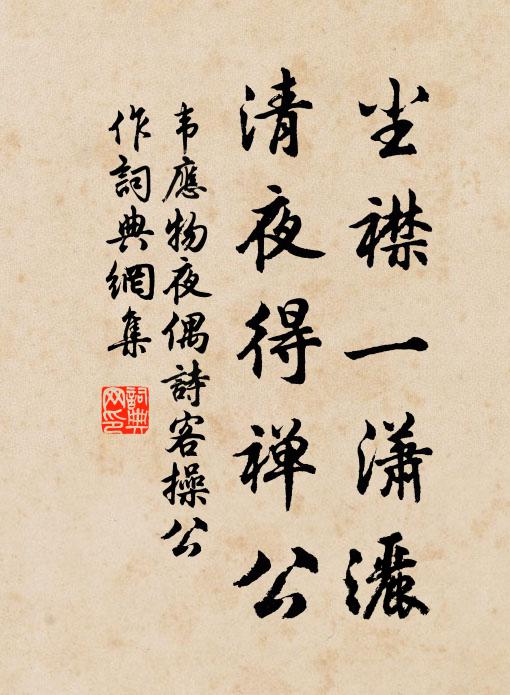 尘襟一潇灑
清夜得禅公
韦應物夜偶詩客操公
作詞典網集
詞典网印